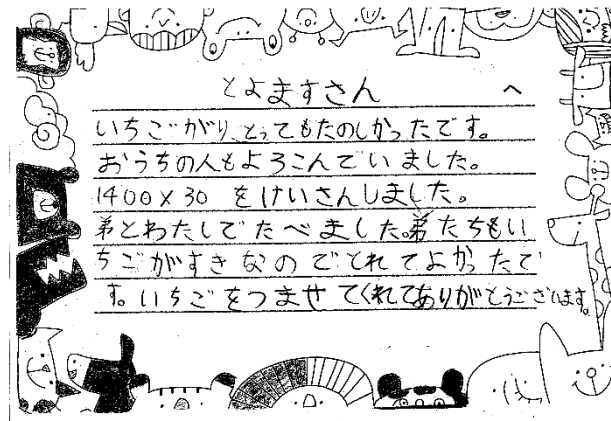 とよますさん へ
いちごがり、とってもたのしかったです。
おうちの人もよろこんでいました。
1400×30 をけいさんしました。
弟とわたしでたべました。弟たちもい
ちごがすきなのでとれてよかったで
す。いちごをつませてくれてありがとうございます。